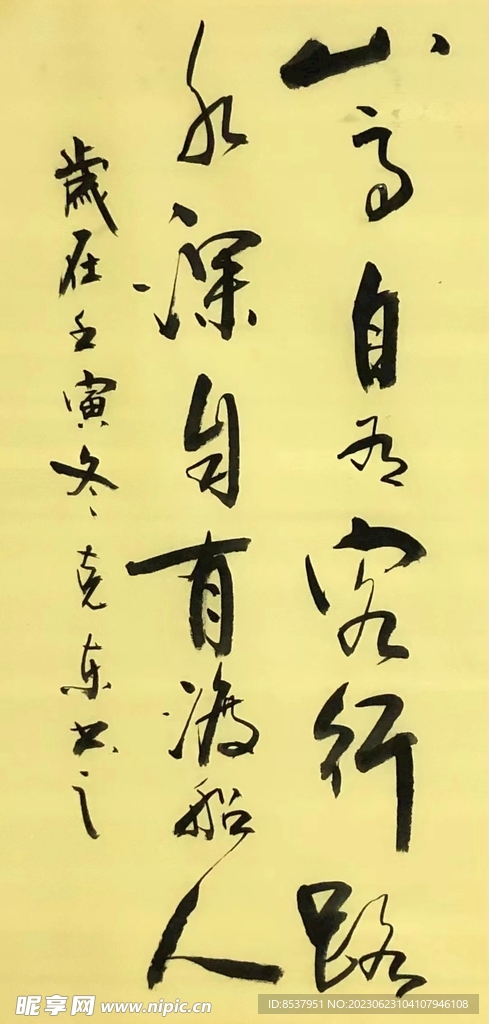 山高自有客行路
水深自有渡船人
歲在壬寅冬克东书之
昵享网 www.nipic.cn
ID:8537951 NO:20230623104107946108